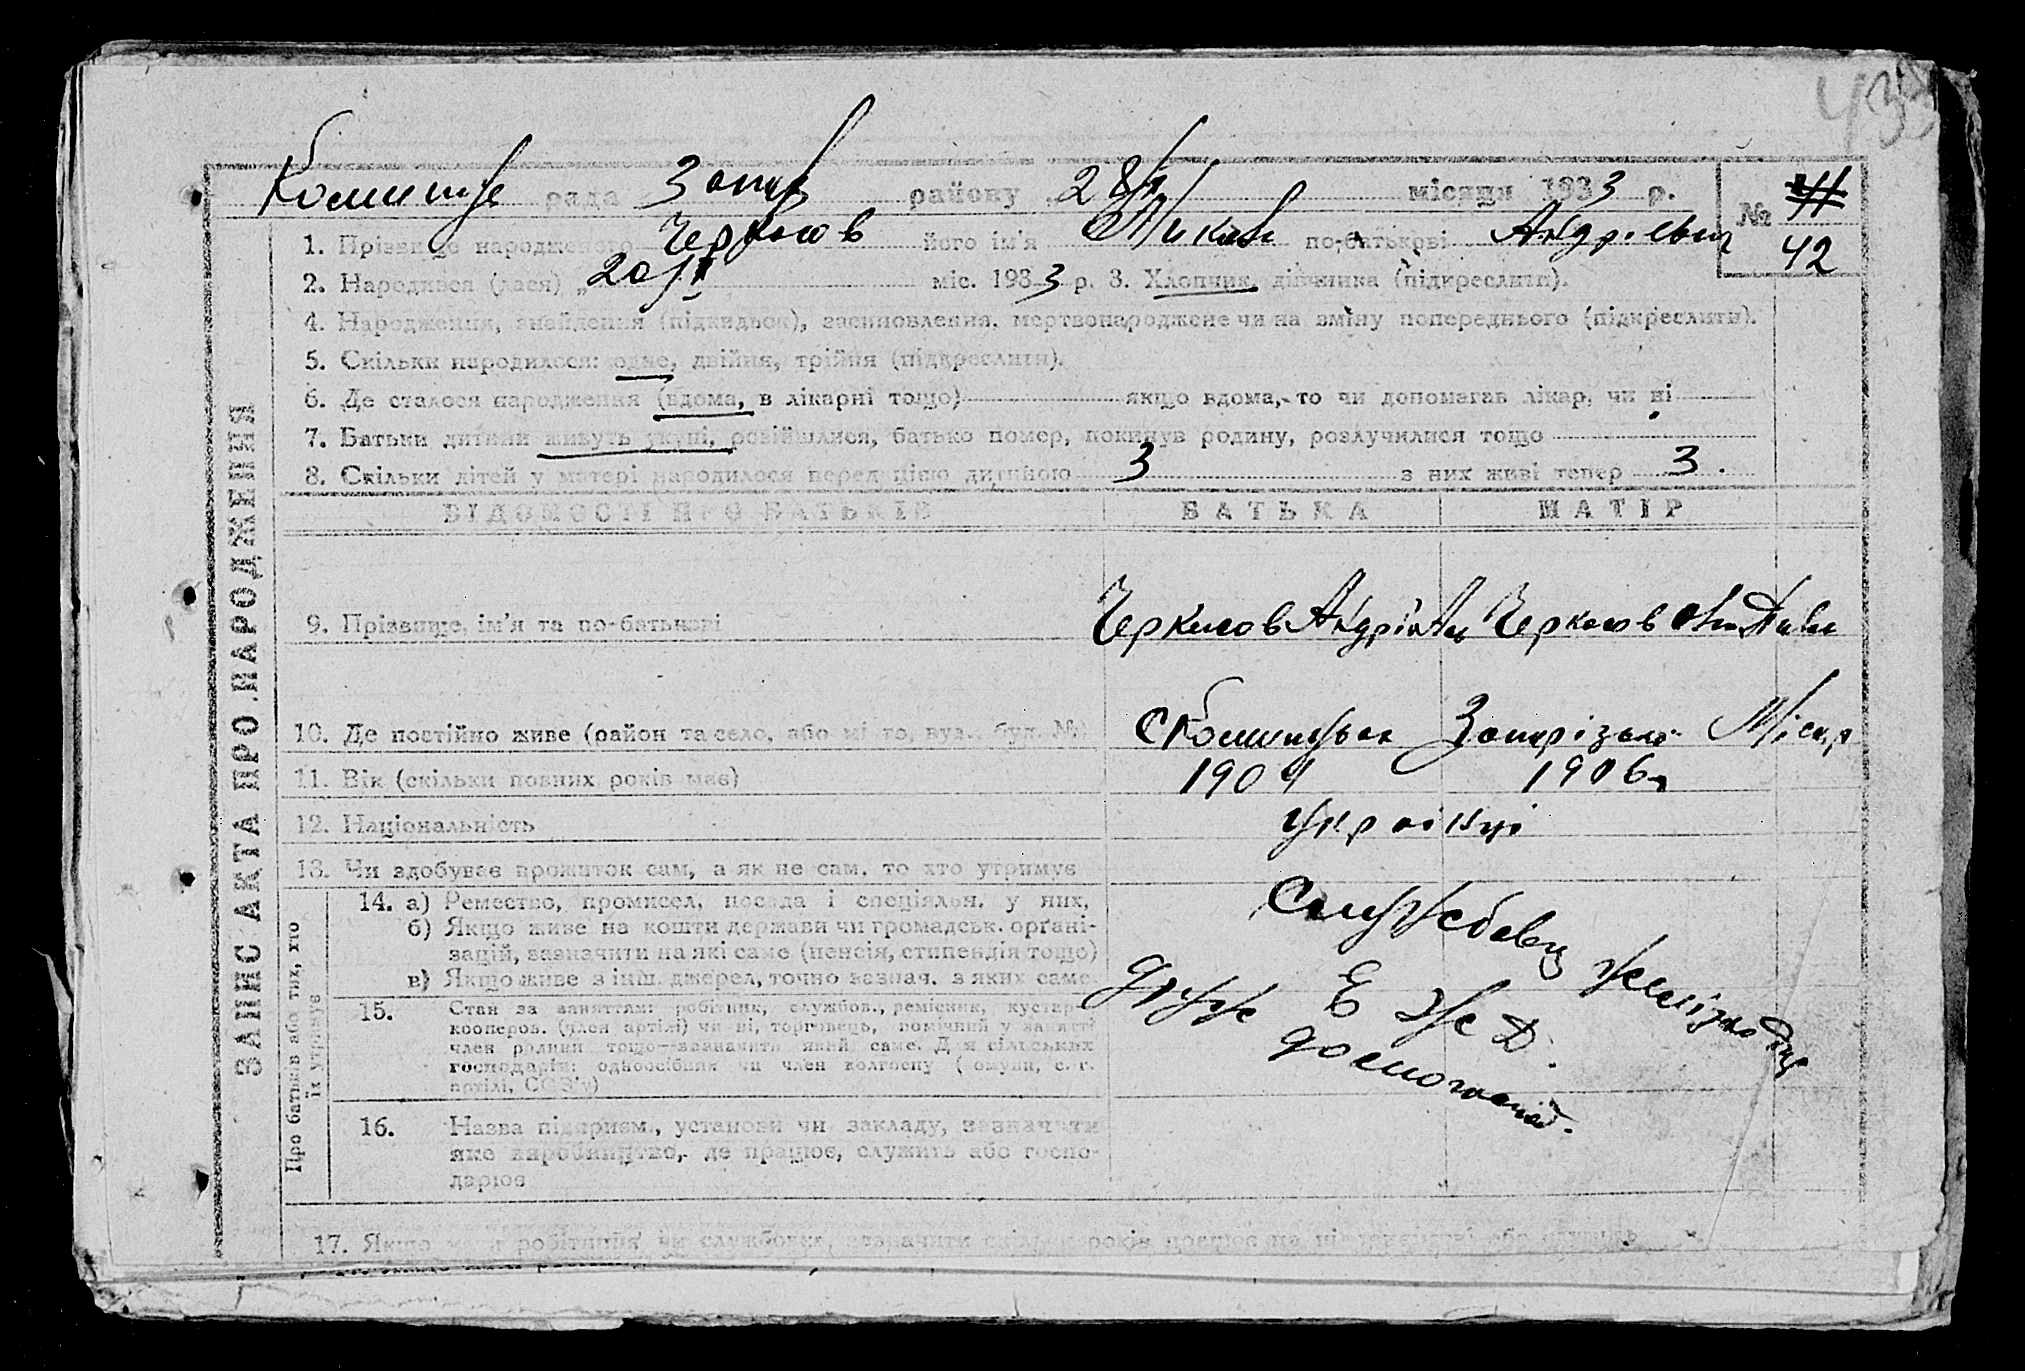 433
рада Запор району 28/ місяця 1933 р. № 42
1. Прізвище народженого Черкасов його ім'я по-батькові Андрієвич
2. Народився (лася) „20/ міс. 1933 р. 3. Хлопчик, дівчинка (підкреслити).
4. Народження, знайдення (підкидьок), засиновлення, мертвонароджене чи на зміну попереднього (підкреслити).
5. Скільки народилося: одне, двійня, трійня (підкреслити).
6. Де сталося народження (вдома, в лікарні тощо) якщо вдома, то чи допомагав лікар, чи ні
7. Батьки дитини живуть укупі, розійшлися, батько помер, покинув родину, розлучилися тощо
8. Скільки дітей у матері народилося перед цією дитиною 3 з них живі тепер 3.
ВІДОМОСТІ ПРО БАТЬКІВ БАТЬКА МАТІР
9. Прізвище, ім'я та по-батькові Черкасов Андрій Черкасов
10. Де постійно живе (район та село, або місто, вул., буд. №)
11. Вік (скільки повних років має) 1904 1906
12. Національність українці
13. Чи здобуває прожиток сам, а як не сам, то хто утримує
14. а) Ремество, промисел, посада і спеціяльн. у них,
б) Якщо живе на кошти держави чи громадськ. орґані-
зацій, зазначити на які саме (пенсія, стипендія тощо)
в) Якщо живе з інш. джерел, точно зазнач. з яких саме
15. Стан за заняттям: робітник, службов., ремісник, кустар
кооперов. (член артілі) чи ні, торговець, помічний у занятті
член родини тощо—зазначити який саме. Для сільських
господарів: одноосібник чи член колгоспу (комуни, с.-г.
артілі, СОЗ'у)
16. Назва підприєм., установи чи закладу, зазначити
яке виробництво, де працює, служить або госпо-
дарює
Е ЖД.
17. Якщо робітник чи службовець, зазначити скільки років працює
ЗАПИС АКТА ПРО НАРОДЖЕННЯ
Про батьків або тих, хто
їх утримує